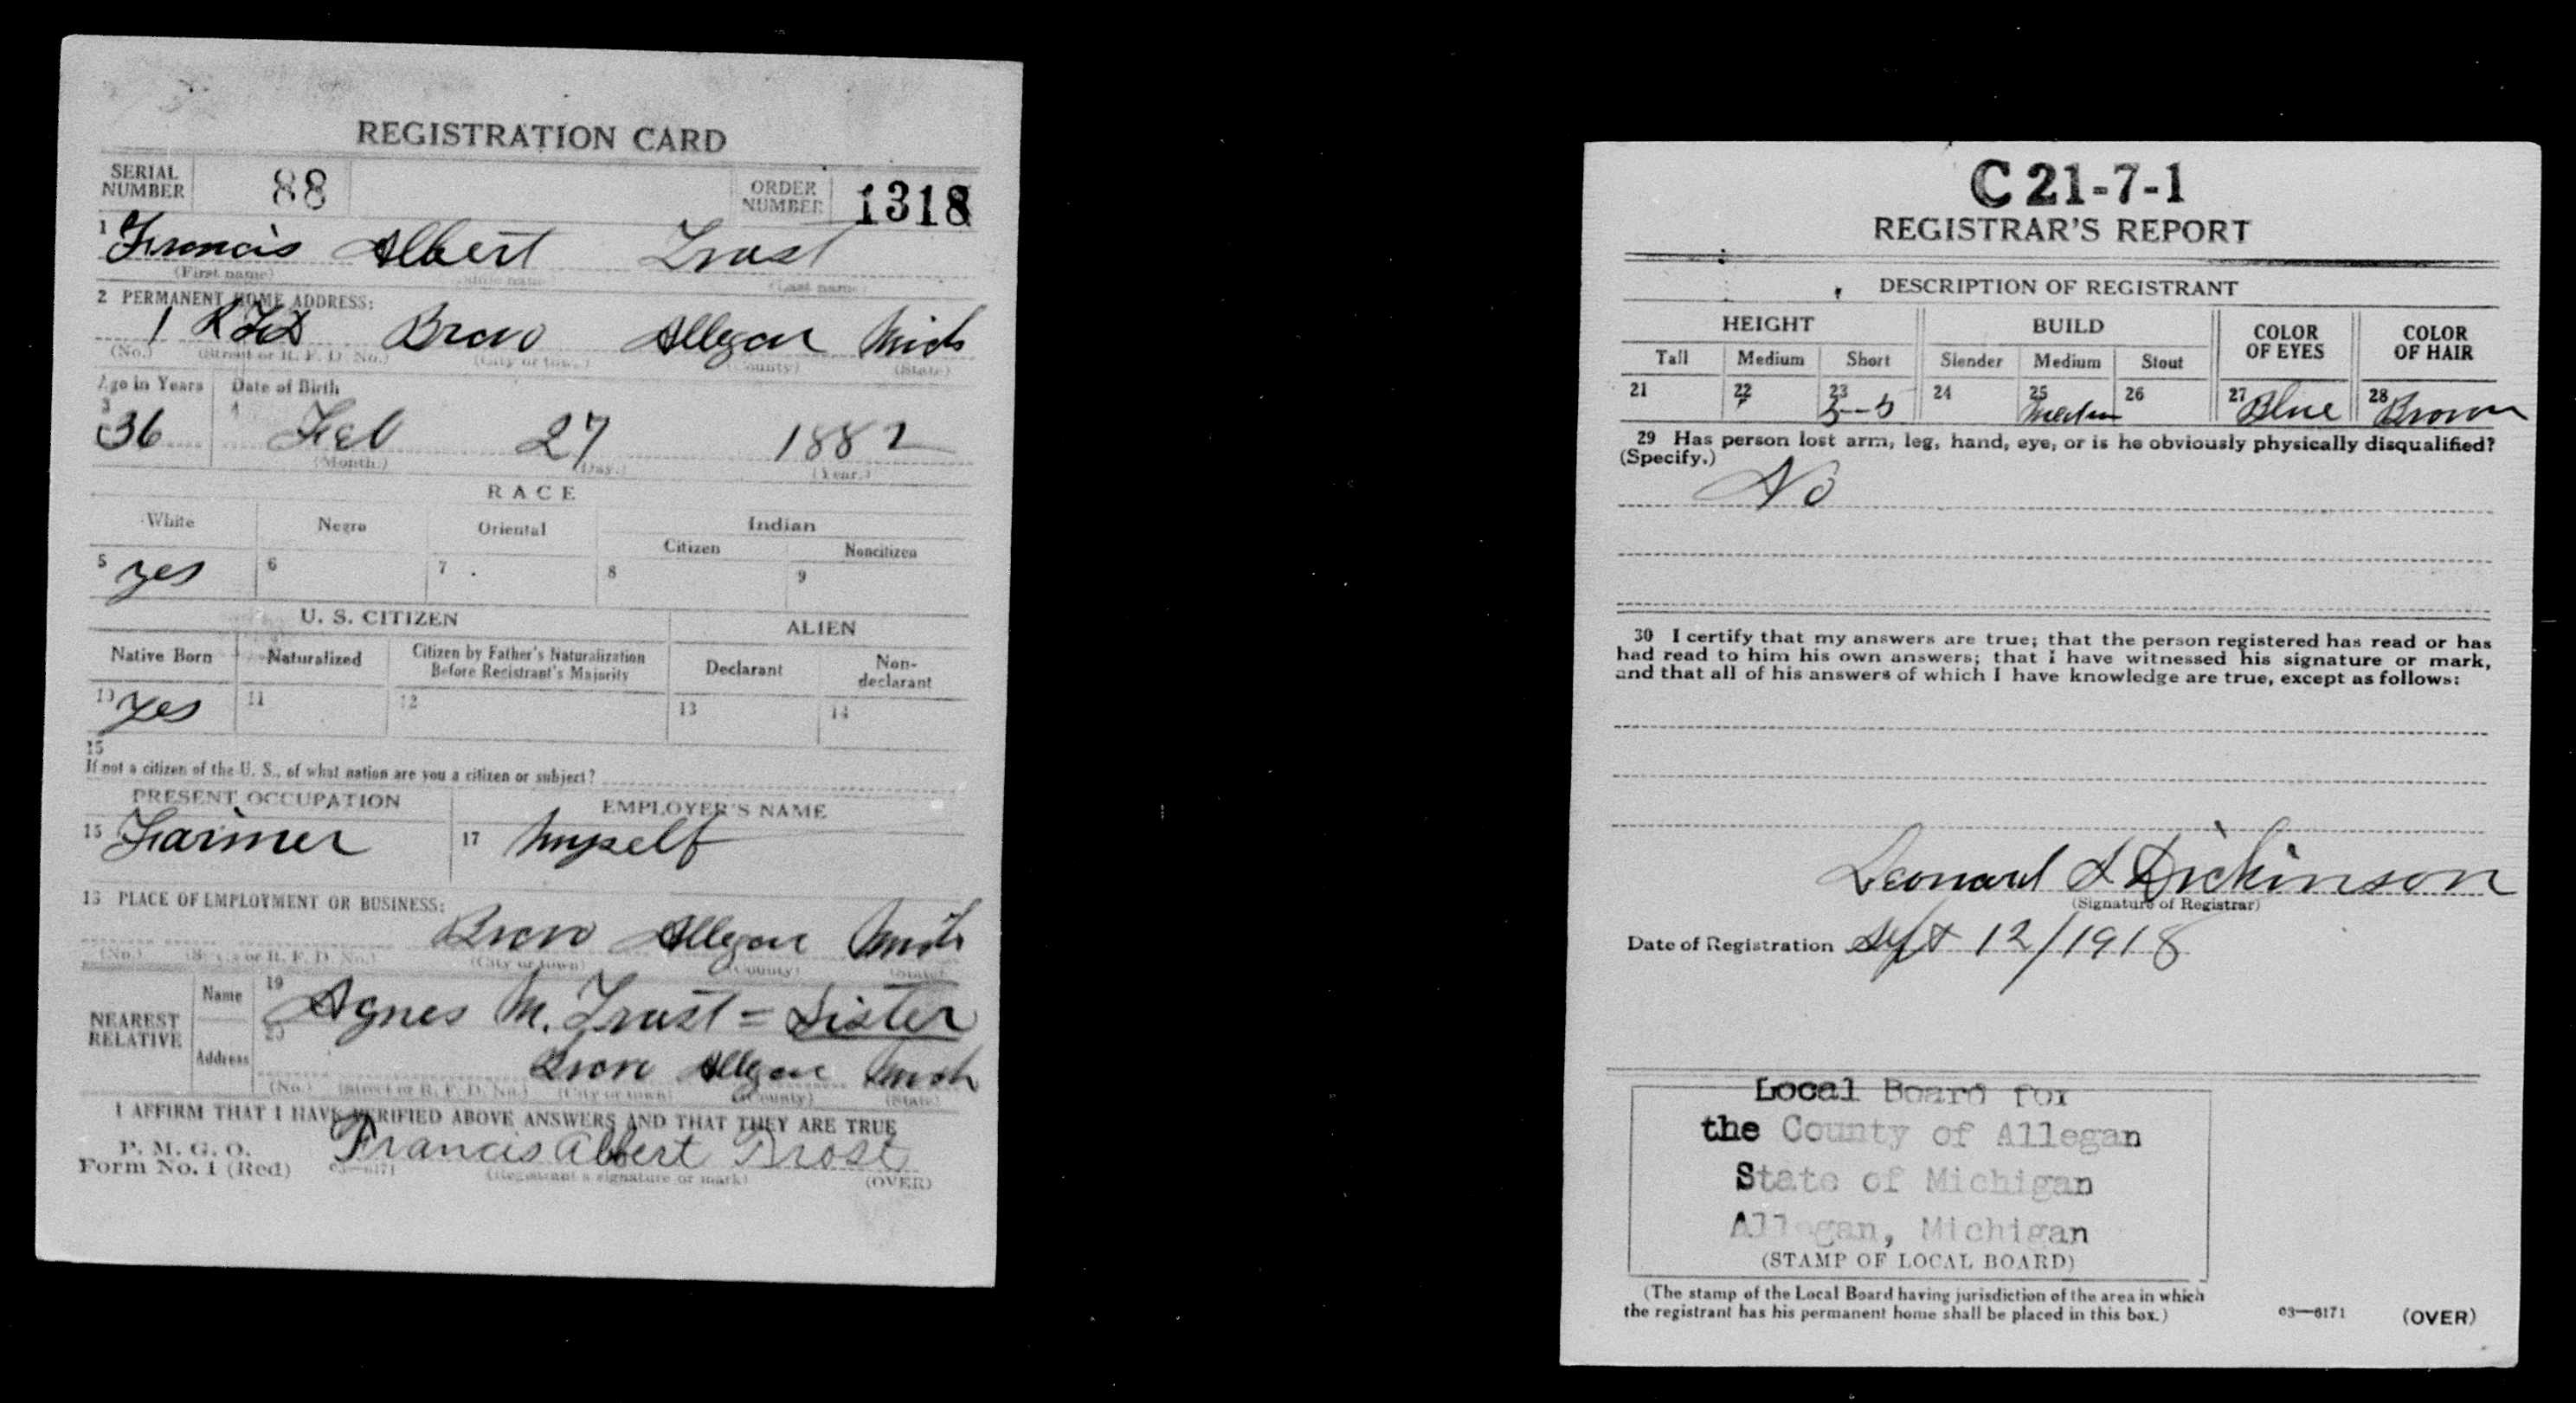 REGISTRATION CARD
SERIAL NUMBER 88 ORDER NUMBER 1318
1 Francis Albert Trost
(First name) (Middle name) (Last name)
2 PERMANENT HOME ADDRESS:
1 RFD Bravo Allegan Mich
(No.) (Street or R. F. D. No.) (City or town) (County) (State)
Age in Years Date of Birth
3 36 4 Feb 27 1882
(Month.) (Day.) (Year.)
RACE
White Negro Oriental Indian
Citizen Noncitizen
5 yes 6 7 8 9
U. S. CITIZEN ALIEN
Native Born Naturalized Citizen by Father's Naturalization Before Registrant's Majority Declarant Non-declarant
10 yes 11 12 13 14
15
If not a citizen of the U. S., of what nation are you a citizen or subject?
PRESENT OCCUPATION EMPLOYER'S NAME
16 Farmer 17 Myself
18 PLACE OF EMPLOYMENT OR BUSINESS:
Bravo Allegan Mich
(No.) (Street or R. F. D. No.) (City or town) (County) (State)
NEAREST RELATIVE Name 19 Agnes M. Trost = Sister
Address 20 Bravo Allegan Mich
(No.) (Street or R. F. D. No.) (City or town) (County) (State)
I AFFIRM THAT I HAVE VERIFIED ABOVE ANSWERS AND THAT THEY ARE TRUE
P. M. G. O.
Form No. 1 (Red) 03—6171 Francis Albert Trost
(Registrant's signature or mark) (OVER)
C 21-7-1
REGISTRAR'S REPORT
DESCRIPTION OF REGISTRANT
HEIGHT BUILD COLOR OF EYES COLOR OF HAIR
Tall Medium Short Slender Medium Stout
21 22 23 5-5 24 25 Medium 26 27 Blue 28 Brown
29 Has person lost arm, leg, hand, eye, or is he obviously physically disqualified?
(Specify.)
No
30 I certify that my answers are true; that the person registered has read or has
had read to him his own answers; that I have witnessed his signature or mark,
and that all of his answers of which I have knowledge are true, except as follows:
Leonard L Dickinson
(Signature of Registrar)
Date of Registration Sept 12/1918
Local Board for
the County of Allegan
State of Michigan
Allegan, Michigan
(STAMP OF LOCAL BOARD)
(The stamp of the Local Board having jurisdiction of the area in which
the registrant has his permanent home shall be placed in this box.)
03—6171 (OVER)